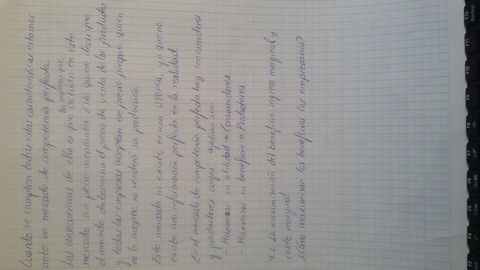 Cuando se cumplen todas estas características estamos
ante un mercado de competencia perfecta.
Las consecuencias de ello es que las empresas que actúan en este
mercado son precio aceptantes esto quiere decir que
el mercado determina el precio de venta de los productos
y todas las empresas aceptan ese precio porque quien
no lo acepte no venderá su producción.
Este mercado no existe es una utopía, ya que no
existe una información perfecta en la realidad
En el mercado de competencia perfecta hay consumidores
y productores cuyos objetivos son:
- Maximizar su utilidad → Consumidores
- Maximizar su beneficio → Productores
4.2. La maximización del beneficio: ingreso marginal y
coste marginal
¿Cómo maximizan los beneficios las empresarias?